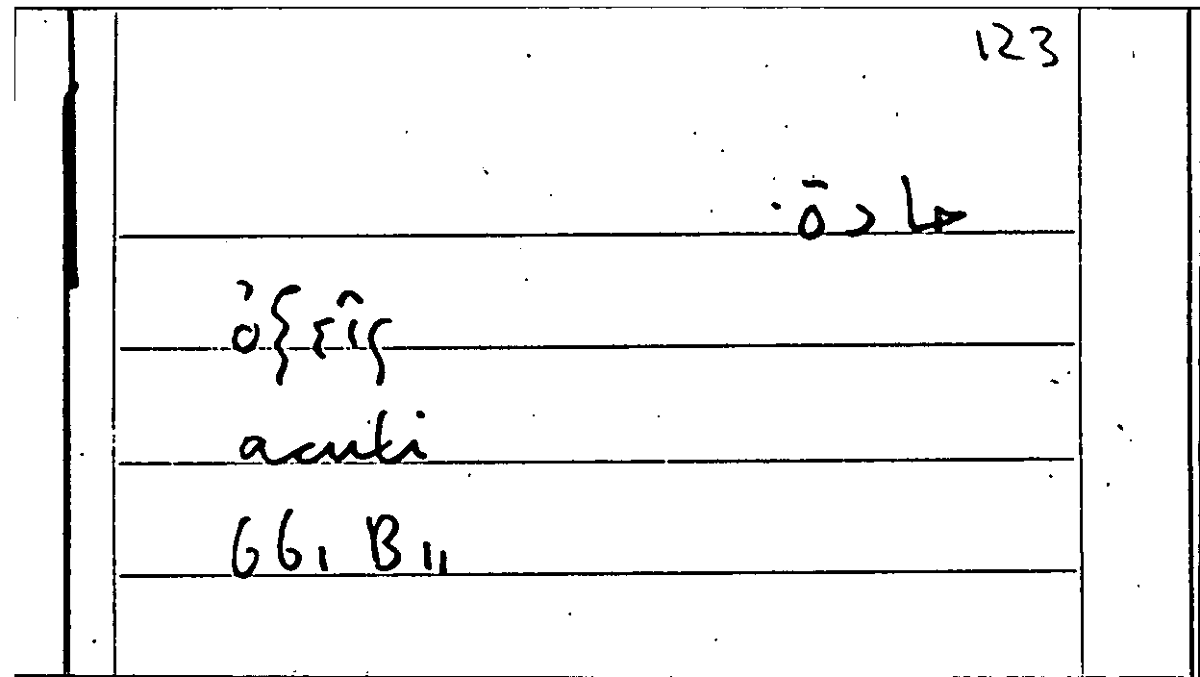 123
حادة
ὀξεῖς
acuti
661 B 11